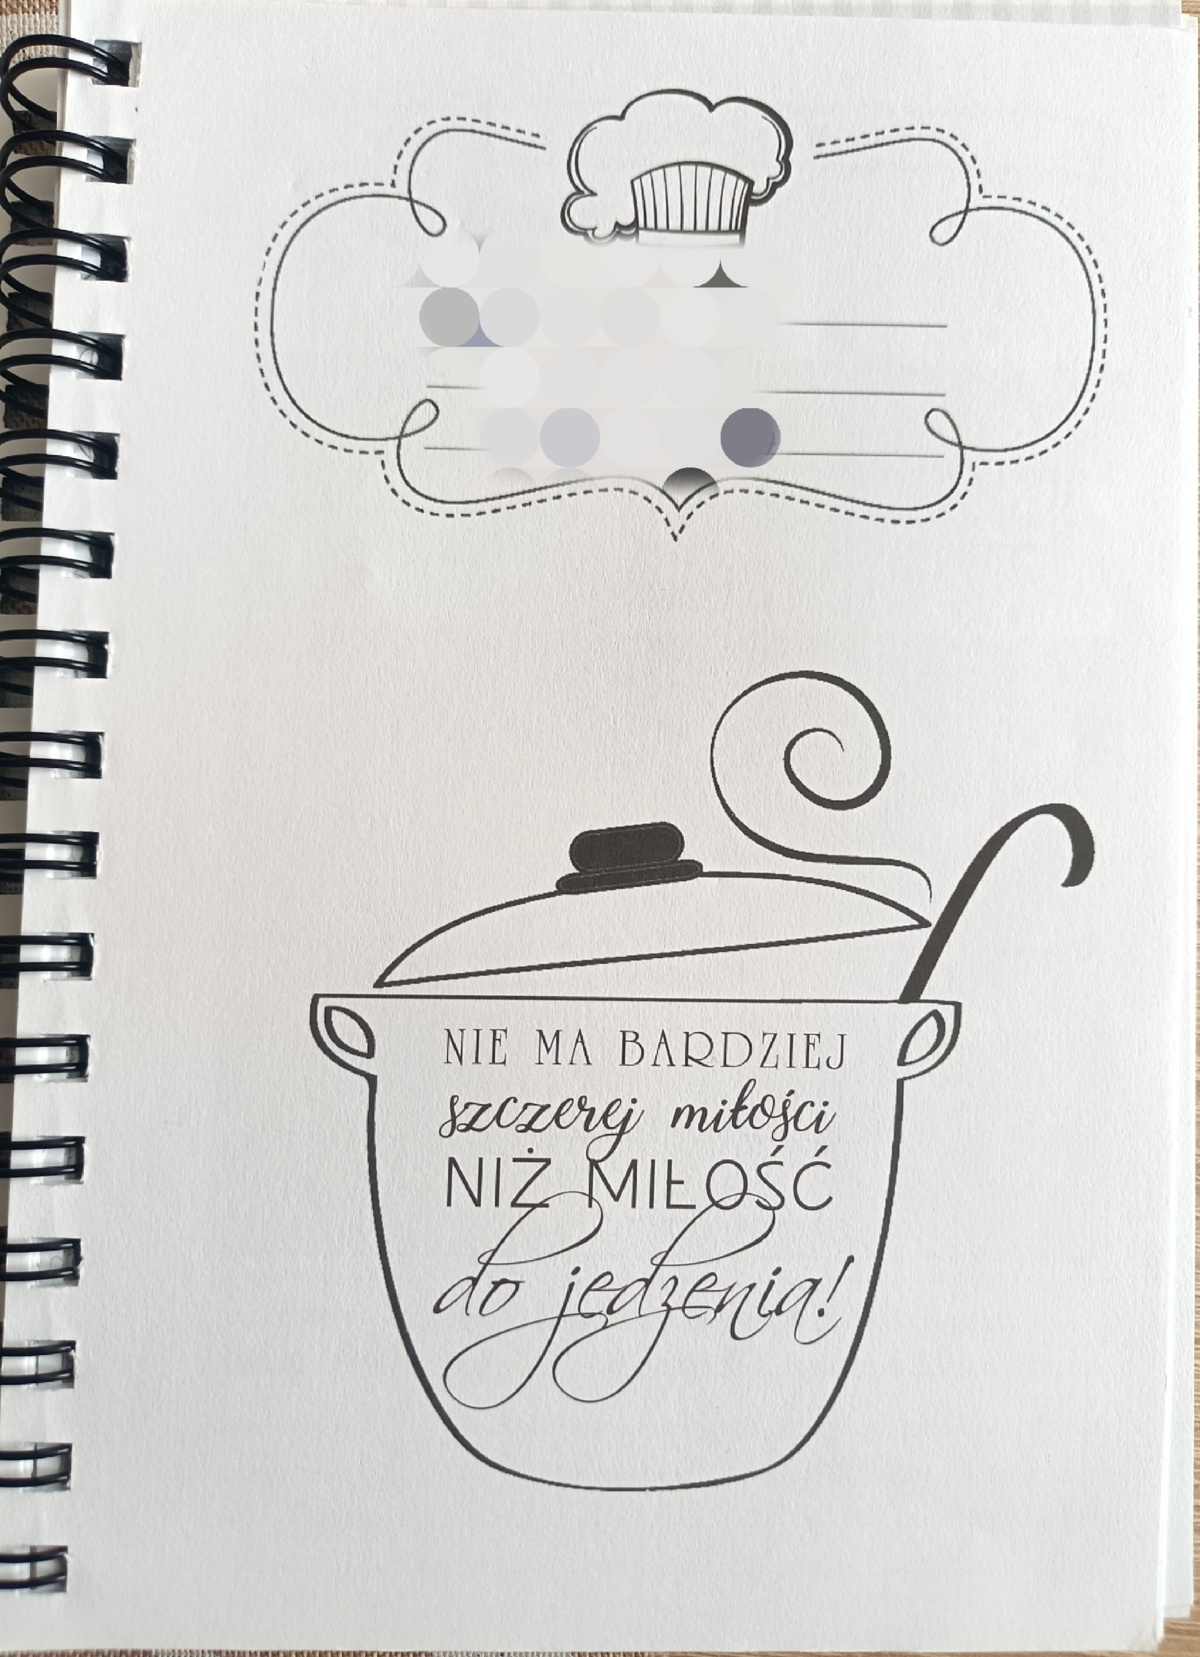 NIE MA BARDZIEJ
szczerej miłości
NIŻ MIŁOŚĆ
do jedzenia!